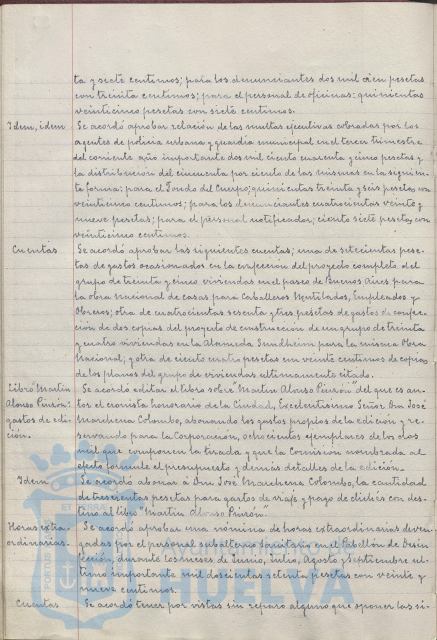 ta y siete centimos; para los denunciantes dos mil cien pesetas
con treinta centimos; para el personal de oficinas: quinientas
veinticinco pesetas con siete centimos.
Idem, idem Se acordó aprobar relación de las multas ejecutivas cobradas por los
agentes de policia urbana y guardia municipal en el tercer trimestre
del corriente año importante dos mil ciento cuarenta y cinco pesetas y
la distribucion del cincuenta por ciento de las mismas en la siguien-
te forma: para el Fondo del Cuerpo; quinientas treinta y seis pesetas, con
veinticinco centimos; para los denunciantes cuatrocientas veinte y
nueve pesetas; para el personal notificador; ciento siete pesetas, con
veinticinco centimos.
Cuentas Se acordó aprobar las siguientes cuentas; una de setecientas pese-
tas de gastos ocasionados en la confeccion del proyecto completo del
grupo de treinta y cinco viviendas en el paseo de Buenos Aires para
la obra Nacional de casas para Caballeros Mutilados, Empleados y
Obreros; otra de cuatrocientas sesenta y tres pesetas de gastos de confec-
ción de dos copias del proyecto de construccion de un grupo de treinta
y cuatro viviendas en la Alameda Sundheim para la misma Obra
Nacional; y otra de ciento cuatro pesetas con veinte centimos de copias
de los planos del grupo de viviendas ultimamente citado.
Libro "Martin Se acordó editar el libro sobre "Martin Alonso Pinzón" del que es au-
Alonso Pinzón": tor el cronista honorario de la Ciudad, Excelentisimo Señor Don José
gastos de edi- Marchena Colombo, abonando los gastos propios de la edición y re-
ción. servando para la Corporación, ochocientos ejemplares de los dos
mil que componen la tirada y que la Comision nombrada al
efecto formule el presupuesto y demás detalles de la edición.
Idem Se acordó abonar a Don José Marchena Colombo, la cantidad
de trescientas pesetas para gastos de viaje y pago de clichés con des-
tino al libro "Martin Alonso Pinzón"
Horas extra- Se acordó aprobar una nómina de horas extraordinarias deven-
ordinarias. gadas por el personal subalterno sanitario en el Pabellón de Desin-
fección, durante los meses de Junio, Julio, Agosto y Septiembre ul-
timo importante mil doscientas setenta pesetas con veinte y
nueve centimos.
Cuentas Se acordó tener por vistas sin reparo alguno que oponer las si-
Ayuntamiento de
HUELVA
PORTUS